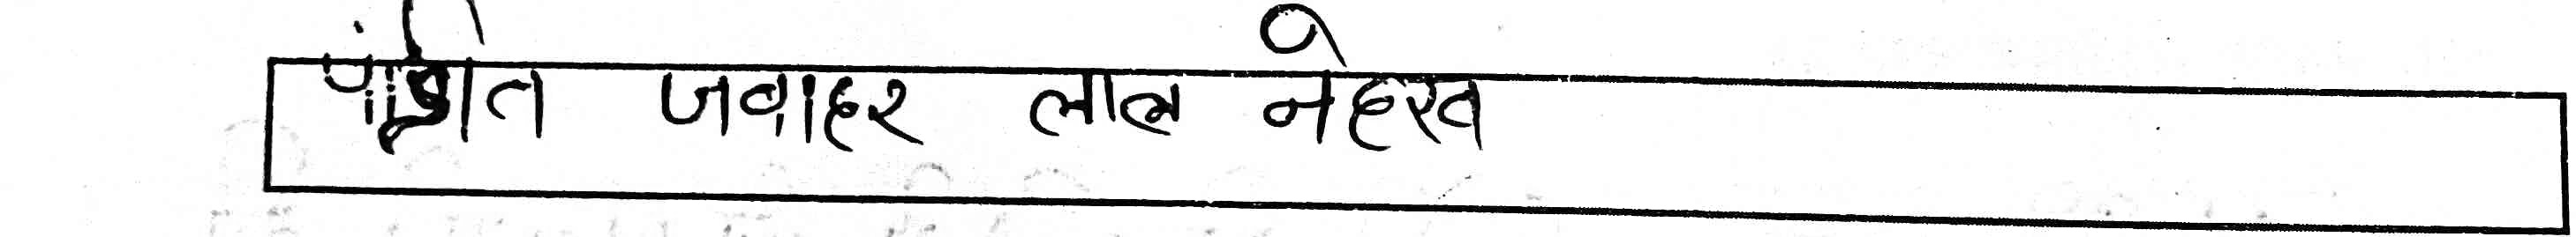 पंडित जवाहर लाल नेहरू